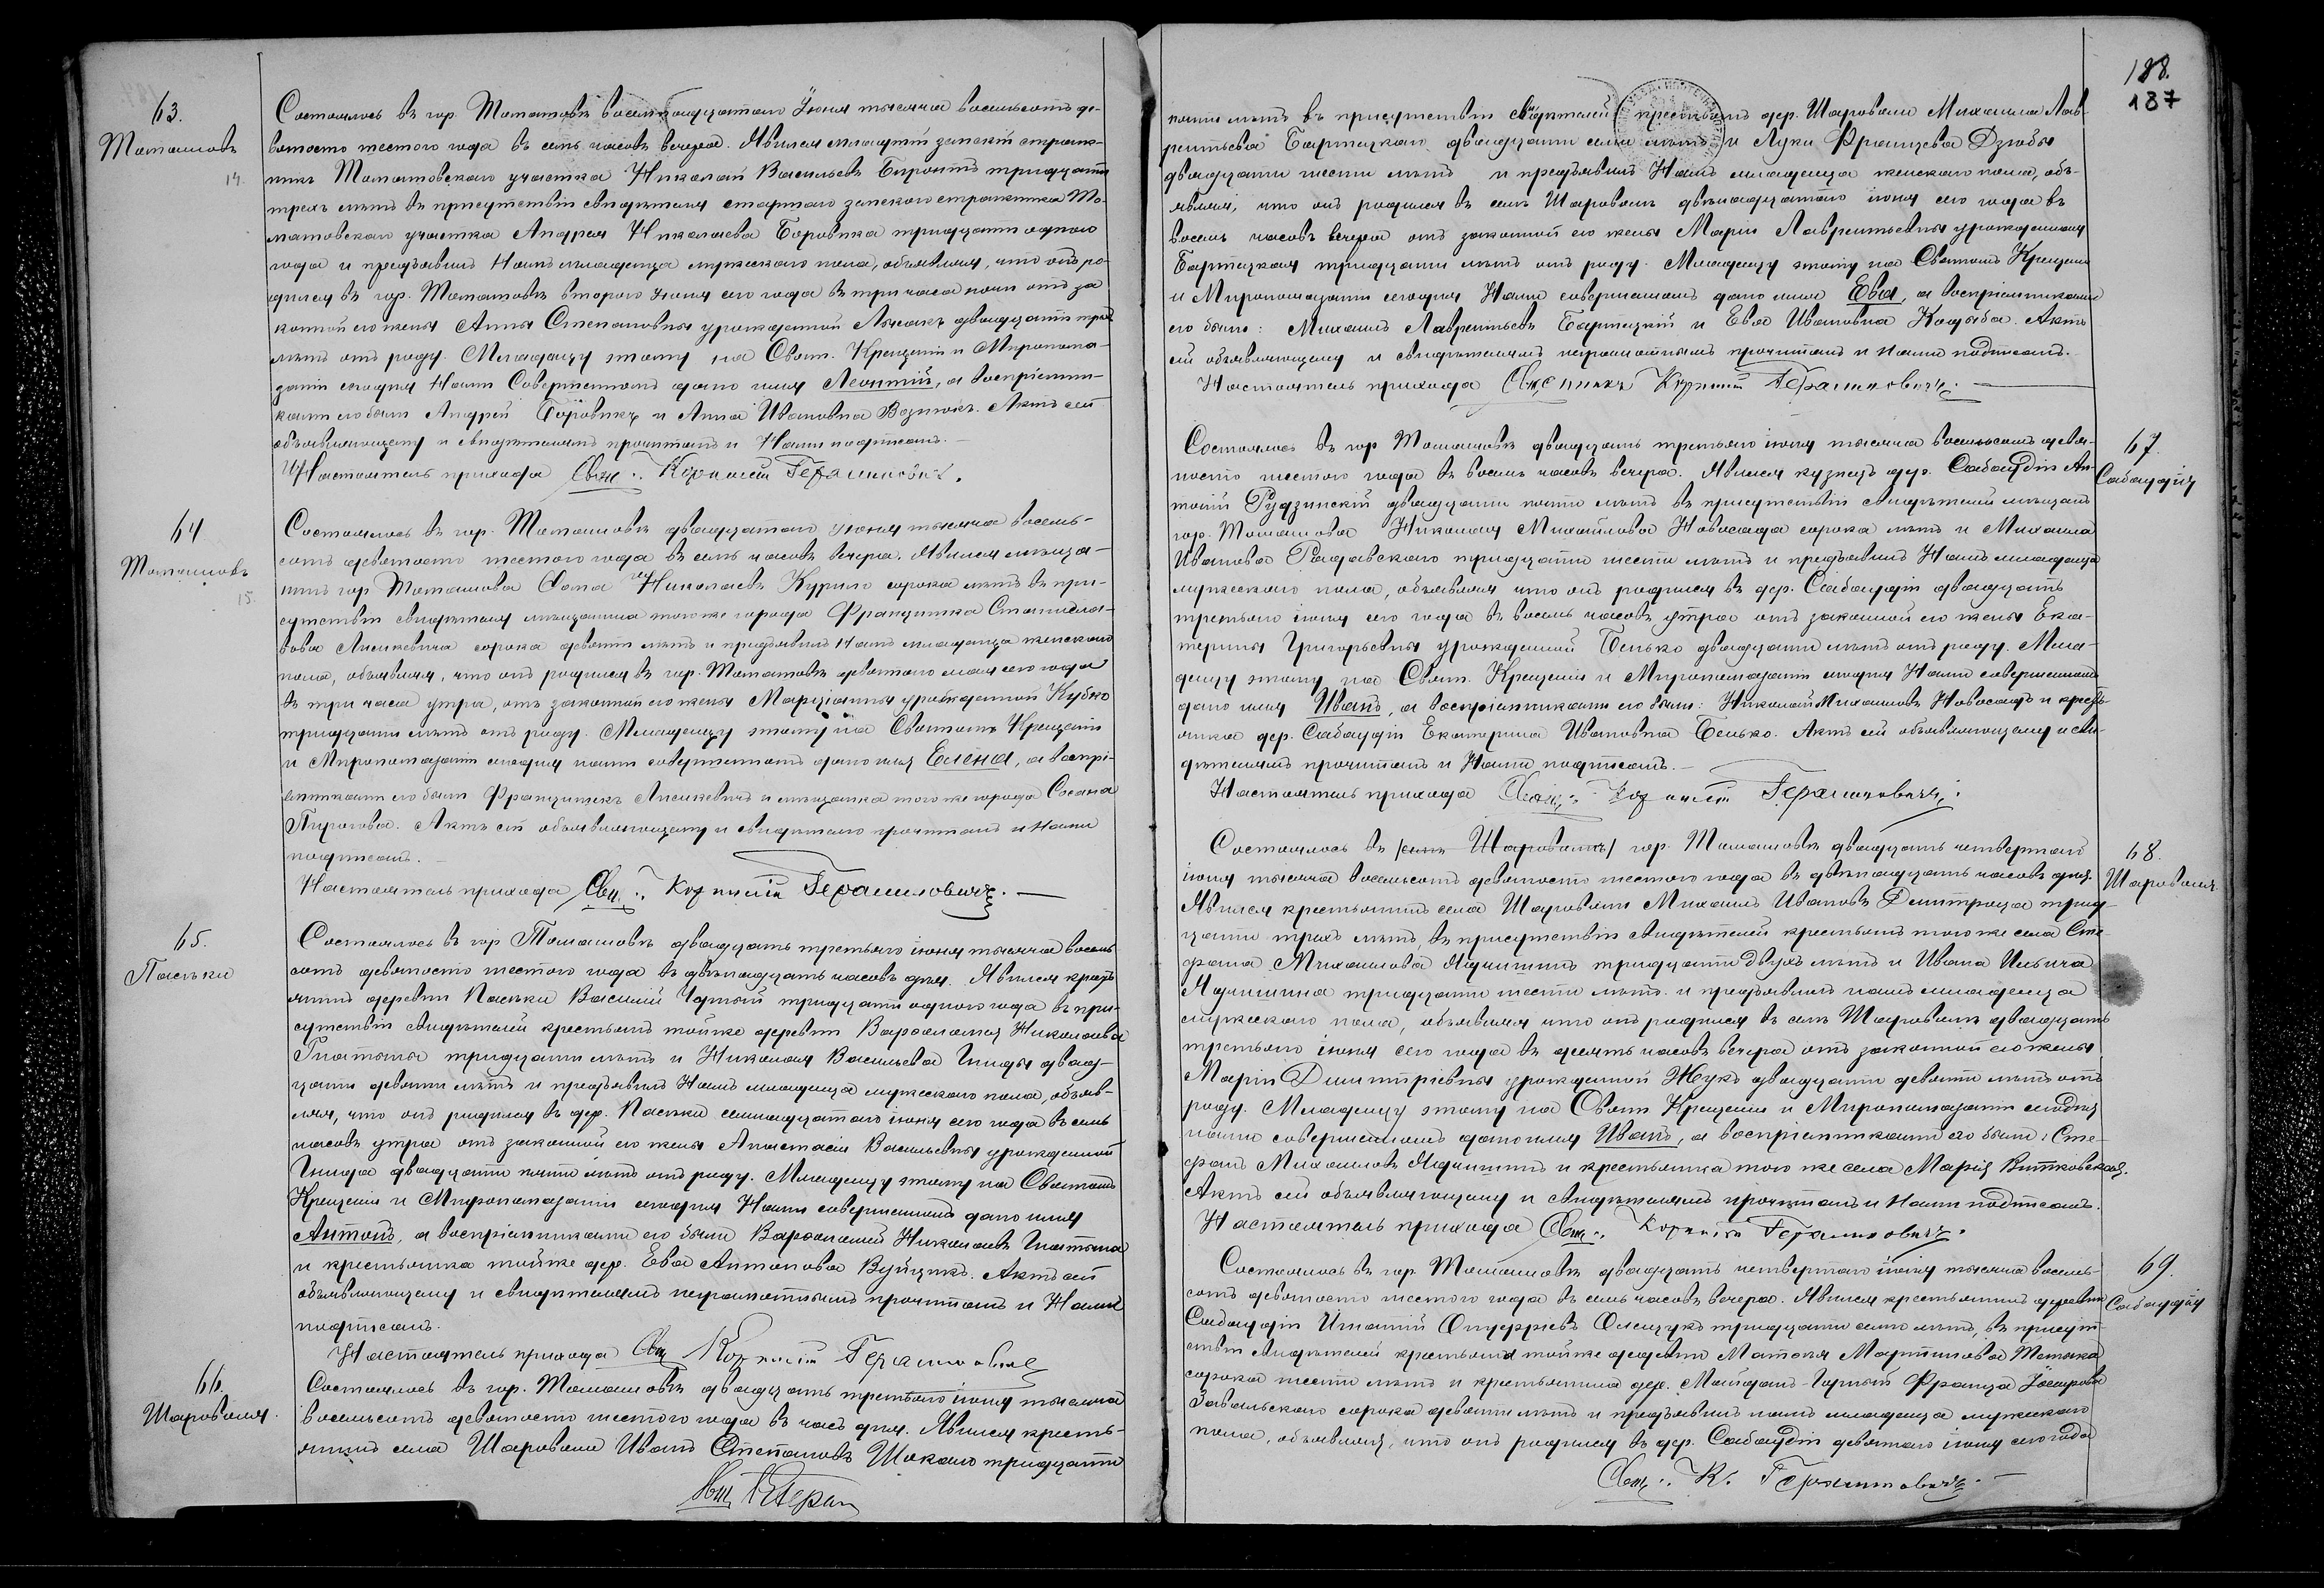 63.
Томашовъ
14.
Состоялось въ гор. Томашовѣ восемнадцатаго Іюня тысяча восемьсотъ де-
вяносто шестого года въ семь часовъ вечера. Явился младшій земскій страж-
никъ Томашовскаго участка Николай Васильевъ тридцати
трехъ лѣтъ въ присутствіи свидѣтеля старшаго земскаго стражника То-
машовскаго участка Андрея Николаева Боровика тридцати одного
года и предъявилъ Намъ младенца мужескаго пола, объявляя, что онъ ро-
дился въ гор. Томашовѣ второго Іюня сего года въ три часа ночи отъ за
конной его жены Анны Степановны урожденной двадцати трехъ
лѣтъ отъ роду. Младенцу этому на Свят. Крещеніи и Миропома-
заніи сегодня Нами Совершенномъ дано имя Леонтій, а воспріемни-
ками его были Андрей Боровикъ и Анна Ивановна Вознюкъ. Актъ сей
объявляющему и свидѣтелямъ прочитанъ и Нами подписанъ.
Настоятель прихода Свящ. Корнилій Герасимовичъ.
64
Томашовъ
15.
Состоялось въ гор. Томашовѣ двадцатаго іюня тысяча восемь-
сотъ девяносто шестого года въ семь часовъ вечера. Явился мѣща-
нинъ гор. Томашова Сома Николаевъ Курило сорока лѣтъ въ при-
сутствіи свидѣтеля мѣщанина того же города Францишка Станисла-
вова Лисикевича сорока девяти лѣтъ и предъявилъ Намъ младенца женскаго
пола, объявляя, что онъ родился въ гор. Томашовѣ девятаго мая сего года
въ три часа утра, отъ законной его жены Марціанны урожденной Кубко
тридцати лѣтъ отъ роду. Младенцу этому на Святомъ Крещеніи
и Миропомазаніи сегодня нами совершенномъ дано имя Елена, а воспрі-
емниками его были Францишекъ Лисикевичъ и мѣщанка того же города Сосана
Пирогова. Актъ сей объявляющему и свидѣтелю прочитанъ и Нами
подписанъ.
Настоятель прихода Свящ. Корнилій Герасимовичъ.
65.
Пасѣки
Состоялось въ гор. Томашовѣ двадцать третьяго іюня тысяча восемь-
сотъ девяносто шестого года въ двѣнадцать часовъ дня. Явился кресть
янинъ деревни Пасѣки Василій Чорный тридцати одного года въ при-
сутствіи свидѣтелей крестьянъ тойже деревни Варѳоломея Николаева
Гнатыша тридцати лѣтъ и Николая Васильева Гниды двад-
цати девяти лѣтъ и предъявилъ Намъ младенца мужескаго пола, объяв-
ляя, что онъ родился въ дер. Пасѣки семнадцатаго іюня сего года въ семь
часовъ утра отъ законной его жены Анастасіи Васильевны урожденной
Гнида двадцати пяти лѣтъ отъ роду. Младенцу этому на Святомъ
Крещеніи и Миропомазаніи сегодня Нами совершенномъ дано имя
Антонъ, а воспріемниками его были Варѳоломей Николаевъ Гнатышъ
и крестьянка тойже дер. Ева Антонова Вуйцикъ. Актъ сей
объявляющему и свидѣтелямъ неграмотнымъ прочитанъ и Нами
подписанъ.
Настоятель прихода Свящ Корнилій Герасимовичъ
66.
Шароволя.
Состоялось въ гор. Томашовѣ двадцать третьяго іюня тысяча
восемьсотъ девяносто шестого года въ часъ дня. Явился кресть-
янинъ села Шароволи Иванъ Степановъ Шокало тридцати
188.
187
пяти лѣтъ въ присутствіи свидѣтелей крестьянъ дер. Шароволи Михаила Лав-
рентьева Бартецкаго двадцати семи лѣтъ и Луки Францева Дзюбы
двадцати шести лѣтъ и предъявилъ Намъ младенца женскаго пола, объ-
являя, что онъ родился въ селѣ Шароволь двѣнадцатаго іюня сего года въ
восемь часовъ вечера отъ законной его жены Маріи Лаврентьевны урожденной
Бартецкая тридцати лѣтъ отъ роду. Младенцу этому на Святомъ Крещеніи
и Миропомазаніи сегодня Нами совершенномъ дано имя Ева, а воспріемниками
его были: Михаилъ Лаврентьевъ Бартецкій и Ева Ивановна Кадыба. Актъ
сей объявляющему и свидѣтелямъ неграмотнымъ прочитанъ и Нами подписанъ.
Настоятель прихода Священникъ Корнилій Герасимовичъ.
67.
Сабаудія
Состоялось въ гор Томашовѣ двадцать третьяго іюня тысяча восемьсотъ девя-
носто шестого года въ восемь часовъ вечера. Явился кузнецъ дер. Сабаудіи Ан-
тоній Рудзинскій двадцати пяти лѣтъ въ присутствіи свидѣтелей мѣщанъ
гор. Томашова Николая Михайлова Новосада сорока лѣтъ и Михаила
Иванова Радавскаго тридцати шести лѣтъ и предъявилъ Намъ младенца
мужескаго пола, объявляя что онъ родился въ дер. Сабаудіи двадцать
третьяго іюня сего года въ восемь часовъ утра отъ законной его жены Ека-
терины Григорьевны урожденной Бенько двадцати лѣтъ отъ роду. Мла-
денцу этому на Свят. Крещеніи и Миропомазаніи сегодня Нами совершенномъ
дано имя Иванъ, а воспріемниками его были: Николай Михаиловъ Новосадъ и кресть-
янка дер. Сабаудіи Екатерина Ивановна Бенько. Актъ сей объявляющему и сви-
дѣтелямъ прочитанъ и Нами подписанъ.
Настоятель прихода Свящ. Корнилій Герасимовичъ.
68.
Шароволя
Состоялось въ /селѣ Шароволь/ гор. Томашовѣ двадцать четвертаго
іюня тысяча восемьсотъ девяносто шестого года въ двѣнадцать часовъ дня.
Явился крестьянинъ села Шароволи Михаилъ Ивановъ Дмитроца трид-
цати трехъ лѣтъ, въ присутствіи свидѣтелей крестьянъ того же села Сте-
фана Михаилова Ядчишинъ тридцати двухъ лѣтъ и Ивана Ильича
Ядчишина тридцати шести лѣтъ и предъявилъ намъ младенца
мужескаго пола, объявляя что онъ родился въ селѣ Шароволь двадцать
третьяго іюня сего года въ десять часовъ вечера отъ законной его жены
Маріи Димитріевны урожденной Жукъ двадцати девяти лѣтъ отъ
роду. Младенцу этому на Свят Крещеніи и Миропомазаніи сегодня
нами совершенномъ дано имя Иванъ, а воспріемниками его были: Сте-
фанъ Михаиловъ Ядчишинъ и крестьянка того же села Марія Витковская.
Актъ сей объявляющему и свидѣтелямъ прочитанъ и Нами подписанъ.
Настоятель прихода Свящ. Корнилій Герасимовичъ.
69.
Сабаудія
Состоялось въ гор. Томашовѣ двадцать четвертаго іюня тысяча восемь-
сотъ девяносто шестого года въ семь часовъ вечера. Явился крестьянинъ деревни
Сабаудіи Игнатій Онуфріевъ Олещукъ тридцати семи лѣтъ, въ присут-
ствіи свидѣтелей крестьянъ тойже деревни Матвея Мартинова
сорока шести лѣтъ и крестьянина дер. Майданъ-Горный Франца Іосифова
Завальскаго сорока девяти лѣтъ и предъявилъ намъ младенца мужескаго
пола, объявляя, что онъ родился въ дер. Сабаудіи девятаго іюня сего года
Свящ. К. Герасимовичъ.